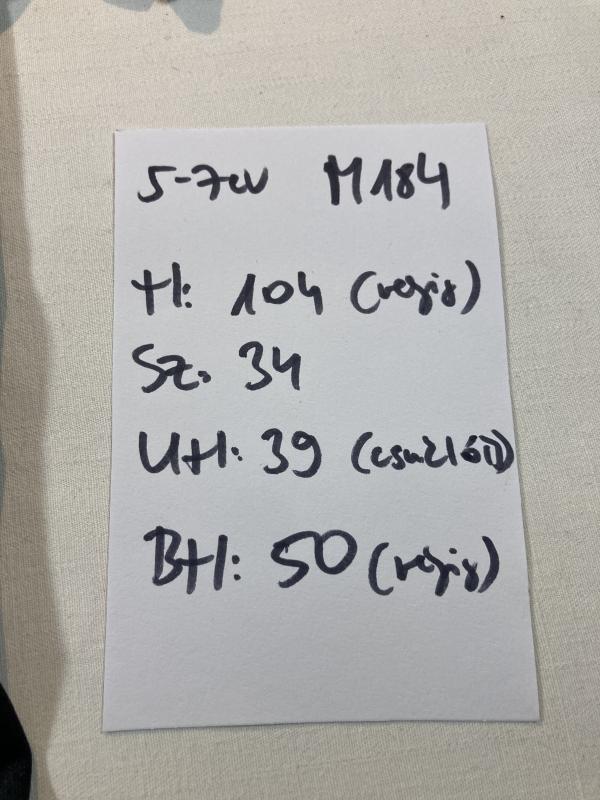 5-7cv M184
H: 104 (végig)
Sz. 34
UH: 39 (csukló)
BH: 50 (végig)